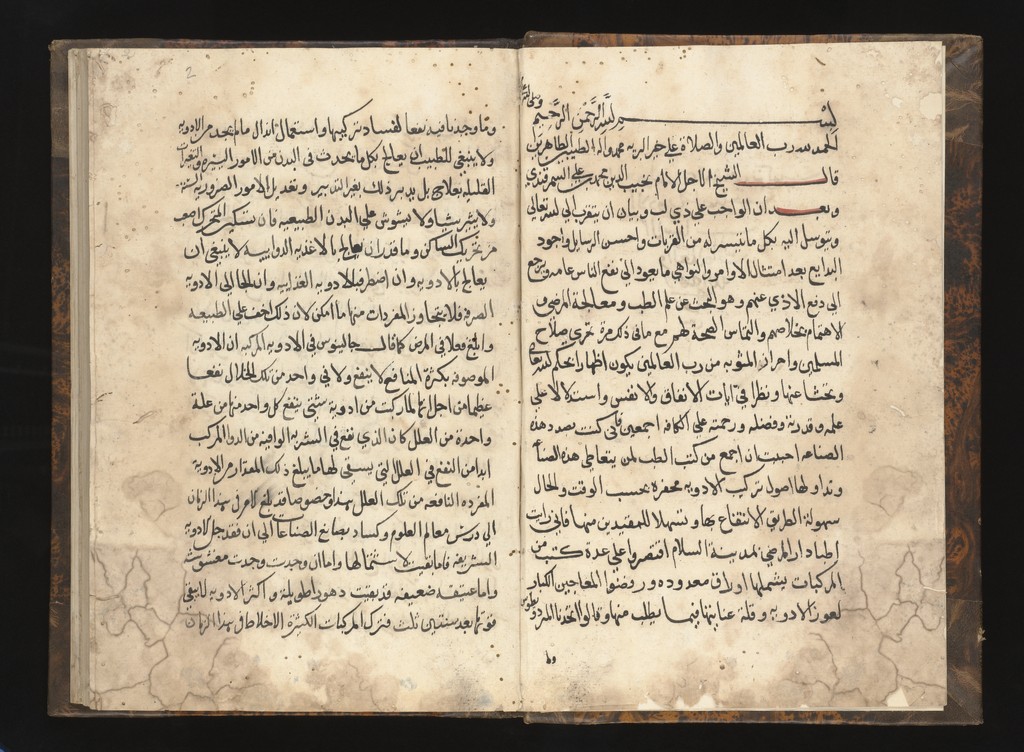 بسم الله الرحمن الرحيم
الحمد لله رب العالمين والصلاة على خير البريه محمد واله الطيبين الطاهرين
قال الشيخ الاجل الامام نجيب الدين محمد بن علي السمرقندي
وبعد ان الواجب على ذي لب وبيان ان يتقرب الي الله تعالى
ويتوسل اليه بكل ما يتيسر له من القربات واحسن الرسايل واجود
البدايع بعد امتثال الاوامر والنواهي ما يعود الي نفع الناس عامه ويرجع
الى دفع الاذي عنهم وهو البحث عن علم الطب ومعالجة المرضى و
الاهتمام بخلاصهم والتماس الصحة لهم مع ما في ذكره من تحري صلاح
المسلمين واحراز المثوبه من رب العالمين يكون اظهارا لحكم الله تعالى
وبحثا عنها ونظرا في ايات الافاق والانفس واستدلالا على
علمه وقدرته وفضله ورحمته علي الكافه اجمعين فاني كنت بصدد هذه
الصناعه احببت ان اجمع من كتب الطب لمن يتعاطي هذه الصناعة
وتداولها اصول تركيب الادويه محفره بحسب الوقت والحال
سهولة الطريق الانتفاع بها وتسهلا للمقيدين منها فاني رايت
اطباء دار المرضي بمدينة السلام اقتصروا علي عدة كتب من
المركبات يشملها اوراق معدوده ورفضوا المعاجين الكبار
لعوز الادويه وقلة عنايتها فيما يطلب منها وقالوا اتخذنا المثرود
2
وما وجدنا فيه نفعا لفساد تركيبها واستعمال ابدال ما لم يجد من الادويه
ولا ينبغي للطبيب ان يعالج بكل ما يحدث في البدن من الامور اليسيرة والتغيرات
القليله بعلاج بل يدبر ذلك بغير التدبير وتعديل الامور الضروريه
ولا يثير شيا ولا يشوش علي البدن الطبيعيه فان تسكين المتحرك اصعب
من تحريك الساكن وما قدر ان يعالج بالاغذيه الدوائيه لا ينبغي ان
يعالج بالادويه وان اضطر فبالادويه الغذاييه وان الجا الي الادويه
الصرفة فلا يتجاوز المفردات منها ما امكن لان ذلك اخف علي الطبيعه
وابلغ فعلا في المرض كما قال جالينوس في الادويه المركبه ان الادويه
الموصوفه بكثرة المنافع لا ينفع ولا في واحد من تلك الخلال نفعا
عظيما من اجل انها لما ركبت من ادوية شتي ينفع كل واحد منها من علة
واحدة من العلل كان الذي نفع في الشربه الواقية من الدوا المركب
ابدا من النفع في العلل التي يسقي لها ما يبلغ ذلك المقدار من الادويه
المفرده النافعه من تلك العلل بهذا وخصوصا قد بلغ الامر في هذا الزمان
الي درس معالم العلوم وكساد بضايع الصناعا الي ان فقد جل الادويه
الشريفة فما بقيت لا سمالها واما ان وجدت وجدت مغشوشه
واما عتيقه ضعيفه قد بقيت دهورا طويلة واكثر الادويه لا يبقي
قوتها بعد سنتين ثلث فنترك المركبات الكثيرة الاخلاط في هذا الزمان